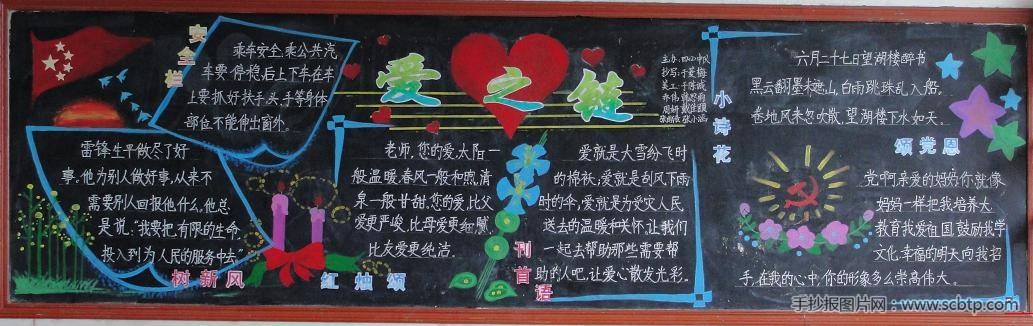 安全栏
乘车安全:乘公共汽
车要停稳后上下车在车
上要抓好扶手,头、手等身体
部位不能伸出窗外。
雷锋生平做尽了好
事。他为别人做好事,从来不
需要别人回报他什么。他总
是说:"我要把有限的生命,
投入到为人民的服务中去
树新风
爱之链
老师,您的爱,太阳一
般温暖,春风一般和煦,清
泉一般甘甜。您的爱,比父
爱更严峻,比母爱更细腻,
比友爱更纯洁。
红烛颂
爱就是大雪纷飞时
的棉袄,爱就是刮风下雨
时的伞,爱就是为受灾人民
送去的温暖和关怀,让我们
一起去帮助那些需要帮
助的人吧,让爱心散发光彩。
刊首语
主办:四(4)中队
小诗花
六月二十七日望湖楼醉书
黑云翻墨未遮山,白雨跳珠乱入船。
卷地风来忽吹散,望湖楼下水如天。
颂党恩
党啊,亲爱的妈妈,你就像
妈妈一样把我培养大
教育我爱祖国,鼓励我学
文化,幸福的明天向我招
手,在我的心中,你的形象多么崇高伟大。
手抄报图片网:www.scbtp.com